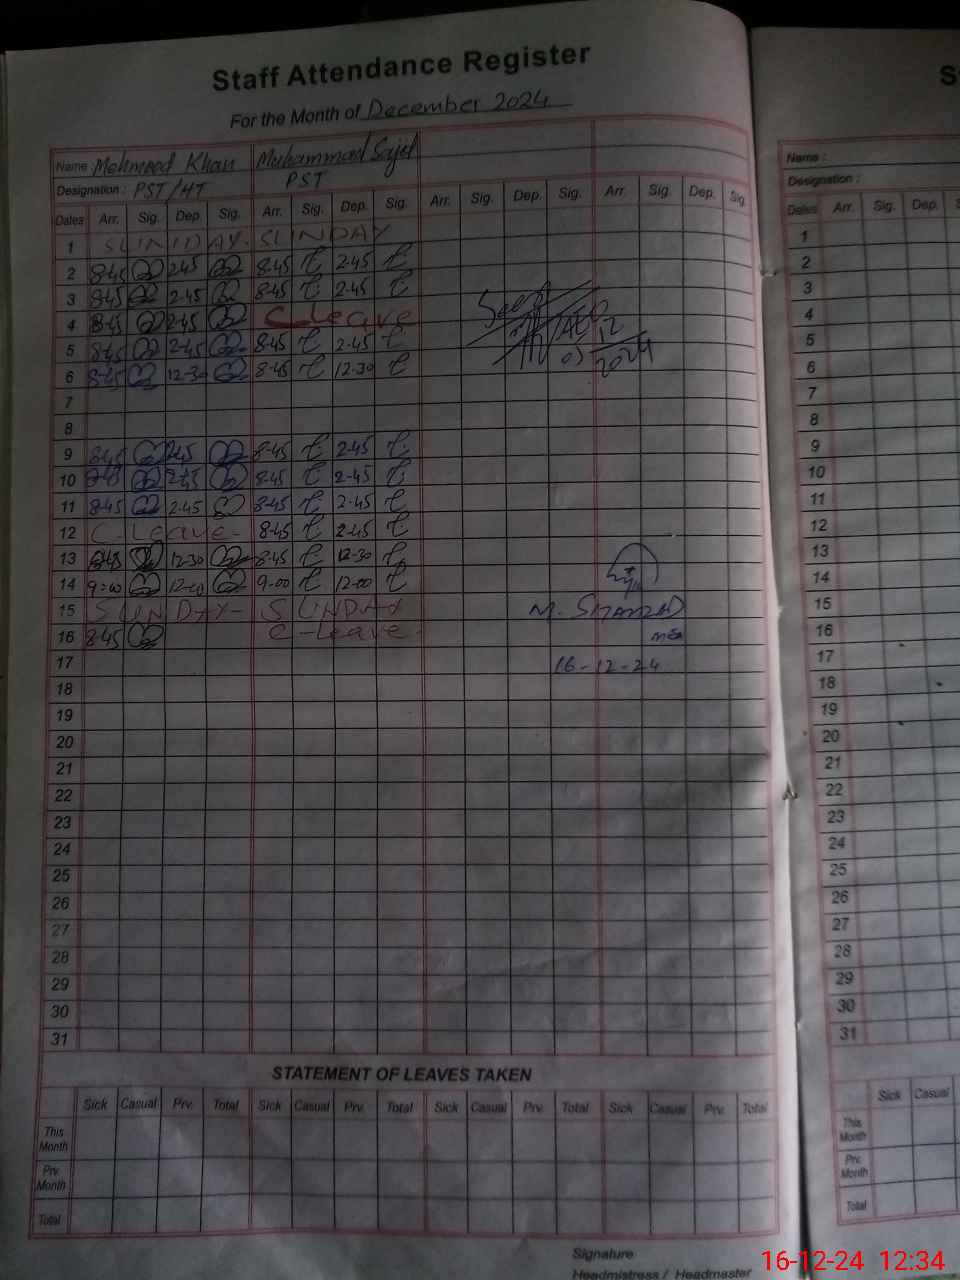 Staff Attendance Register
For the Month of December 2024
Name Mehmood Khan Muhammad Sajid
Designation : PST/HT PST
Dates Arr. Sig. Dep. Sig. Arr. Sig. Dep. Sig. Arr. Sig. Dep. Sig. Arr. Sig. Dep. Sig.
1 SUNIDAY. SUNDAY
2 8-45 2-45 8-45 2-45
3 8-45 2-45 8-45 2-45
4 8-45 2-45 C-Leave
5 8-45 2-45 8-45 2-45
6 8-45 12-30 8-45 12-30
7
8
9 8-45 2-45 8-45 2-45
10 8-45 2-45 8-45 2-45
11 8-45 2-45 8-45 2-45
12 C-Leave- 8-45 2-45
13 8-45 12-30 8-45 12-30
14 9=00 12-00 9-00 12-00
15 SUNDAY- SUNDAY
16 8-45 C-Leave-
17
18
19
20
21
22
23
24
25
26
27
28
29
30
31
Seen
AEO
05 12 2024
M. SHAHZAD
MEA
16-12-24
STATEMENT OF LEAVES TAKEN
Sick Casual Prv. Total Sick Casual Prv. Total Sick Casual Prv. Total Sick Casual Prv. Total
This Month
Prv. Month
Total
Signature
Headmistress / Headmaster
S
Name :
Designation :
Dates Arr. Sig. Dep. S
1
2
3
4
5
6
7
8
9
10
11
12
13
14
15
16
17
18
19
20
21
22
23
24
25
26
27
28
29
30
31
Sick Casual
This Month
Prv. Month
Total
16-12-24 12:34